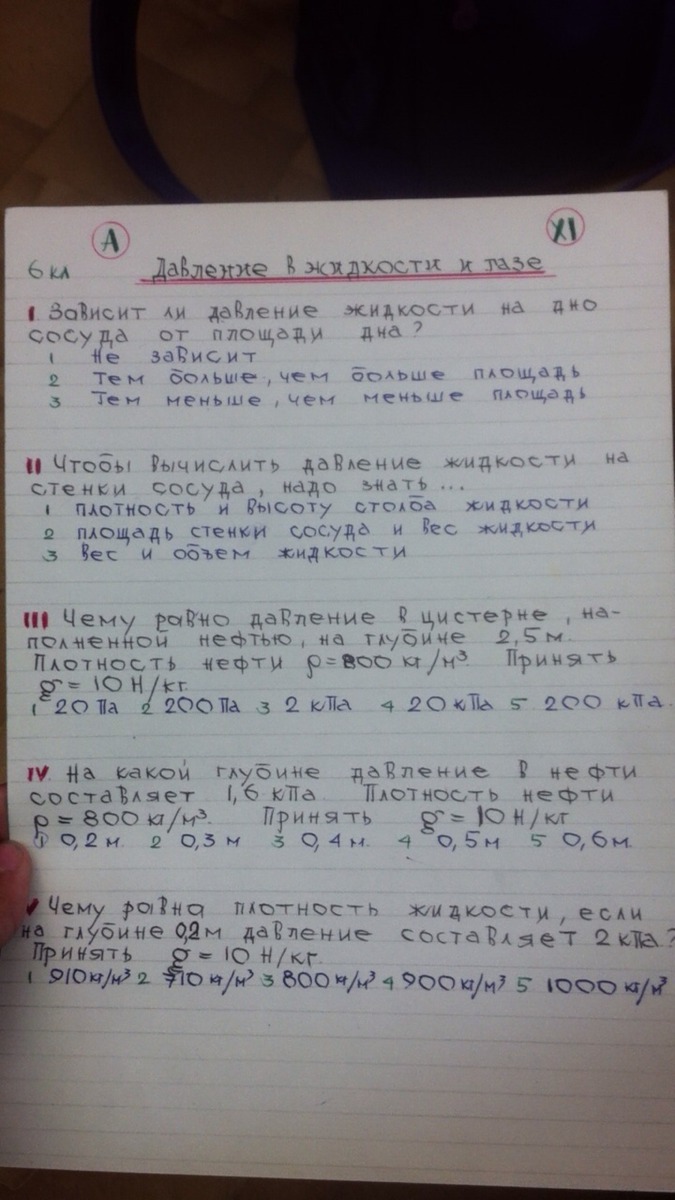 А
XI
6 кл Давление в жидкости и газе
I Зависит ли давление жидкости на дно
сосуда от площади дна?
1 Не зависит
2 Тем больше, чем больше площадь
3 Тем меньше, чем меньше площадь
II Чтобы вычислить давление жидкости на
стенки сосуда, надо знать...
1 плотность и высоту столба жидкости
2 площадь стенки сосуда и вес жидкости
3 Вес и объем жидкости
III Чему равно давление в цистерне, на-
полненной нефтью, на глубине 2,5м.
Плотность нефти ρ=800 кг/м³ Принять
g=10Н/кг.
1 20 Па 2 200 Па 3 2 кПа 4 20 кПа 5. 200 кПа.
IV На какой глубине давление в нефти
составляет 1,6 кПа. Плотность нефти
ρ=800 кг/м³. Принять g=10Н/кг
1 0,2 м. 2 0,3 м 3 0,4 м. 4 0,5м 5 0,6м.
V Чему равна плотность жидкости, если
на глубине 0,2м давление составляет 2 кПа?
Принять g=10Н/кг.
1 910кг/м³ 2 710кг/м³ 3 800кг/м³ 4 900кг/м³ 5 1000 кг/м³